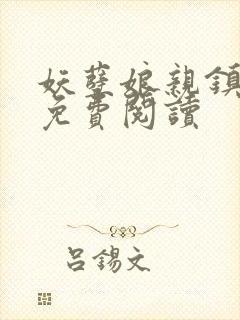 妖孽娘親鎮
免費閱讀
呂錫文